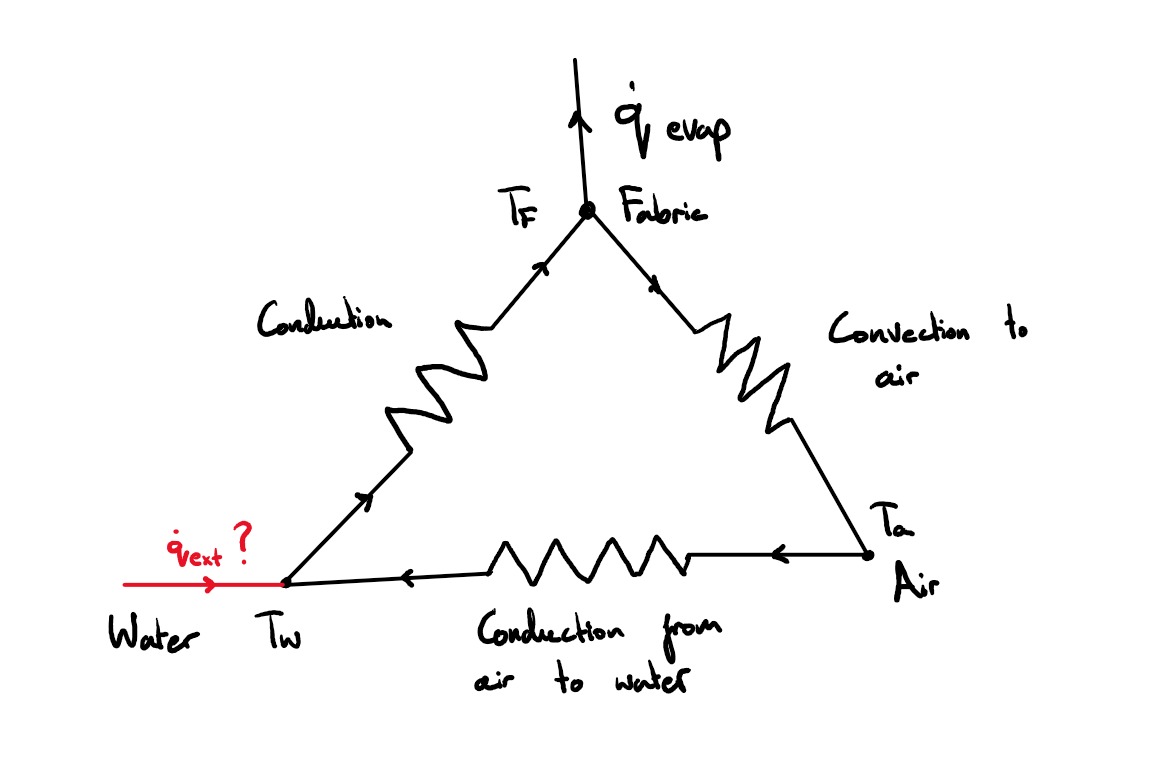 q̇ evap
T_F Fabric
Conduction
Convection to
air
q̇ext ?
Ta
Air
Water Tw
Conduction from
air to water